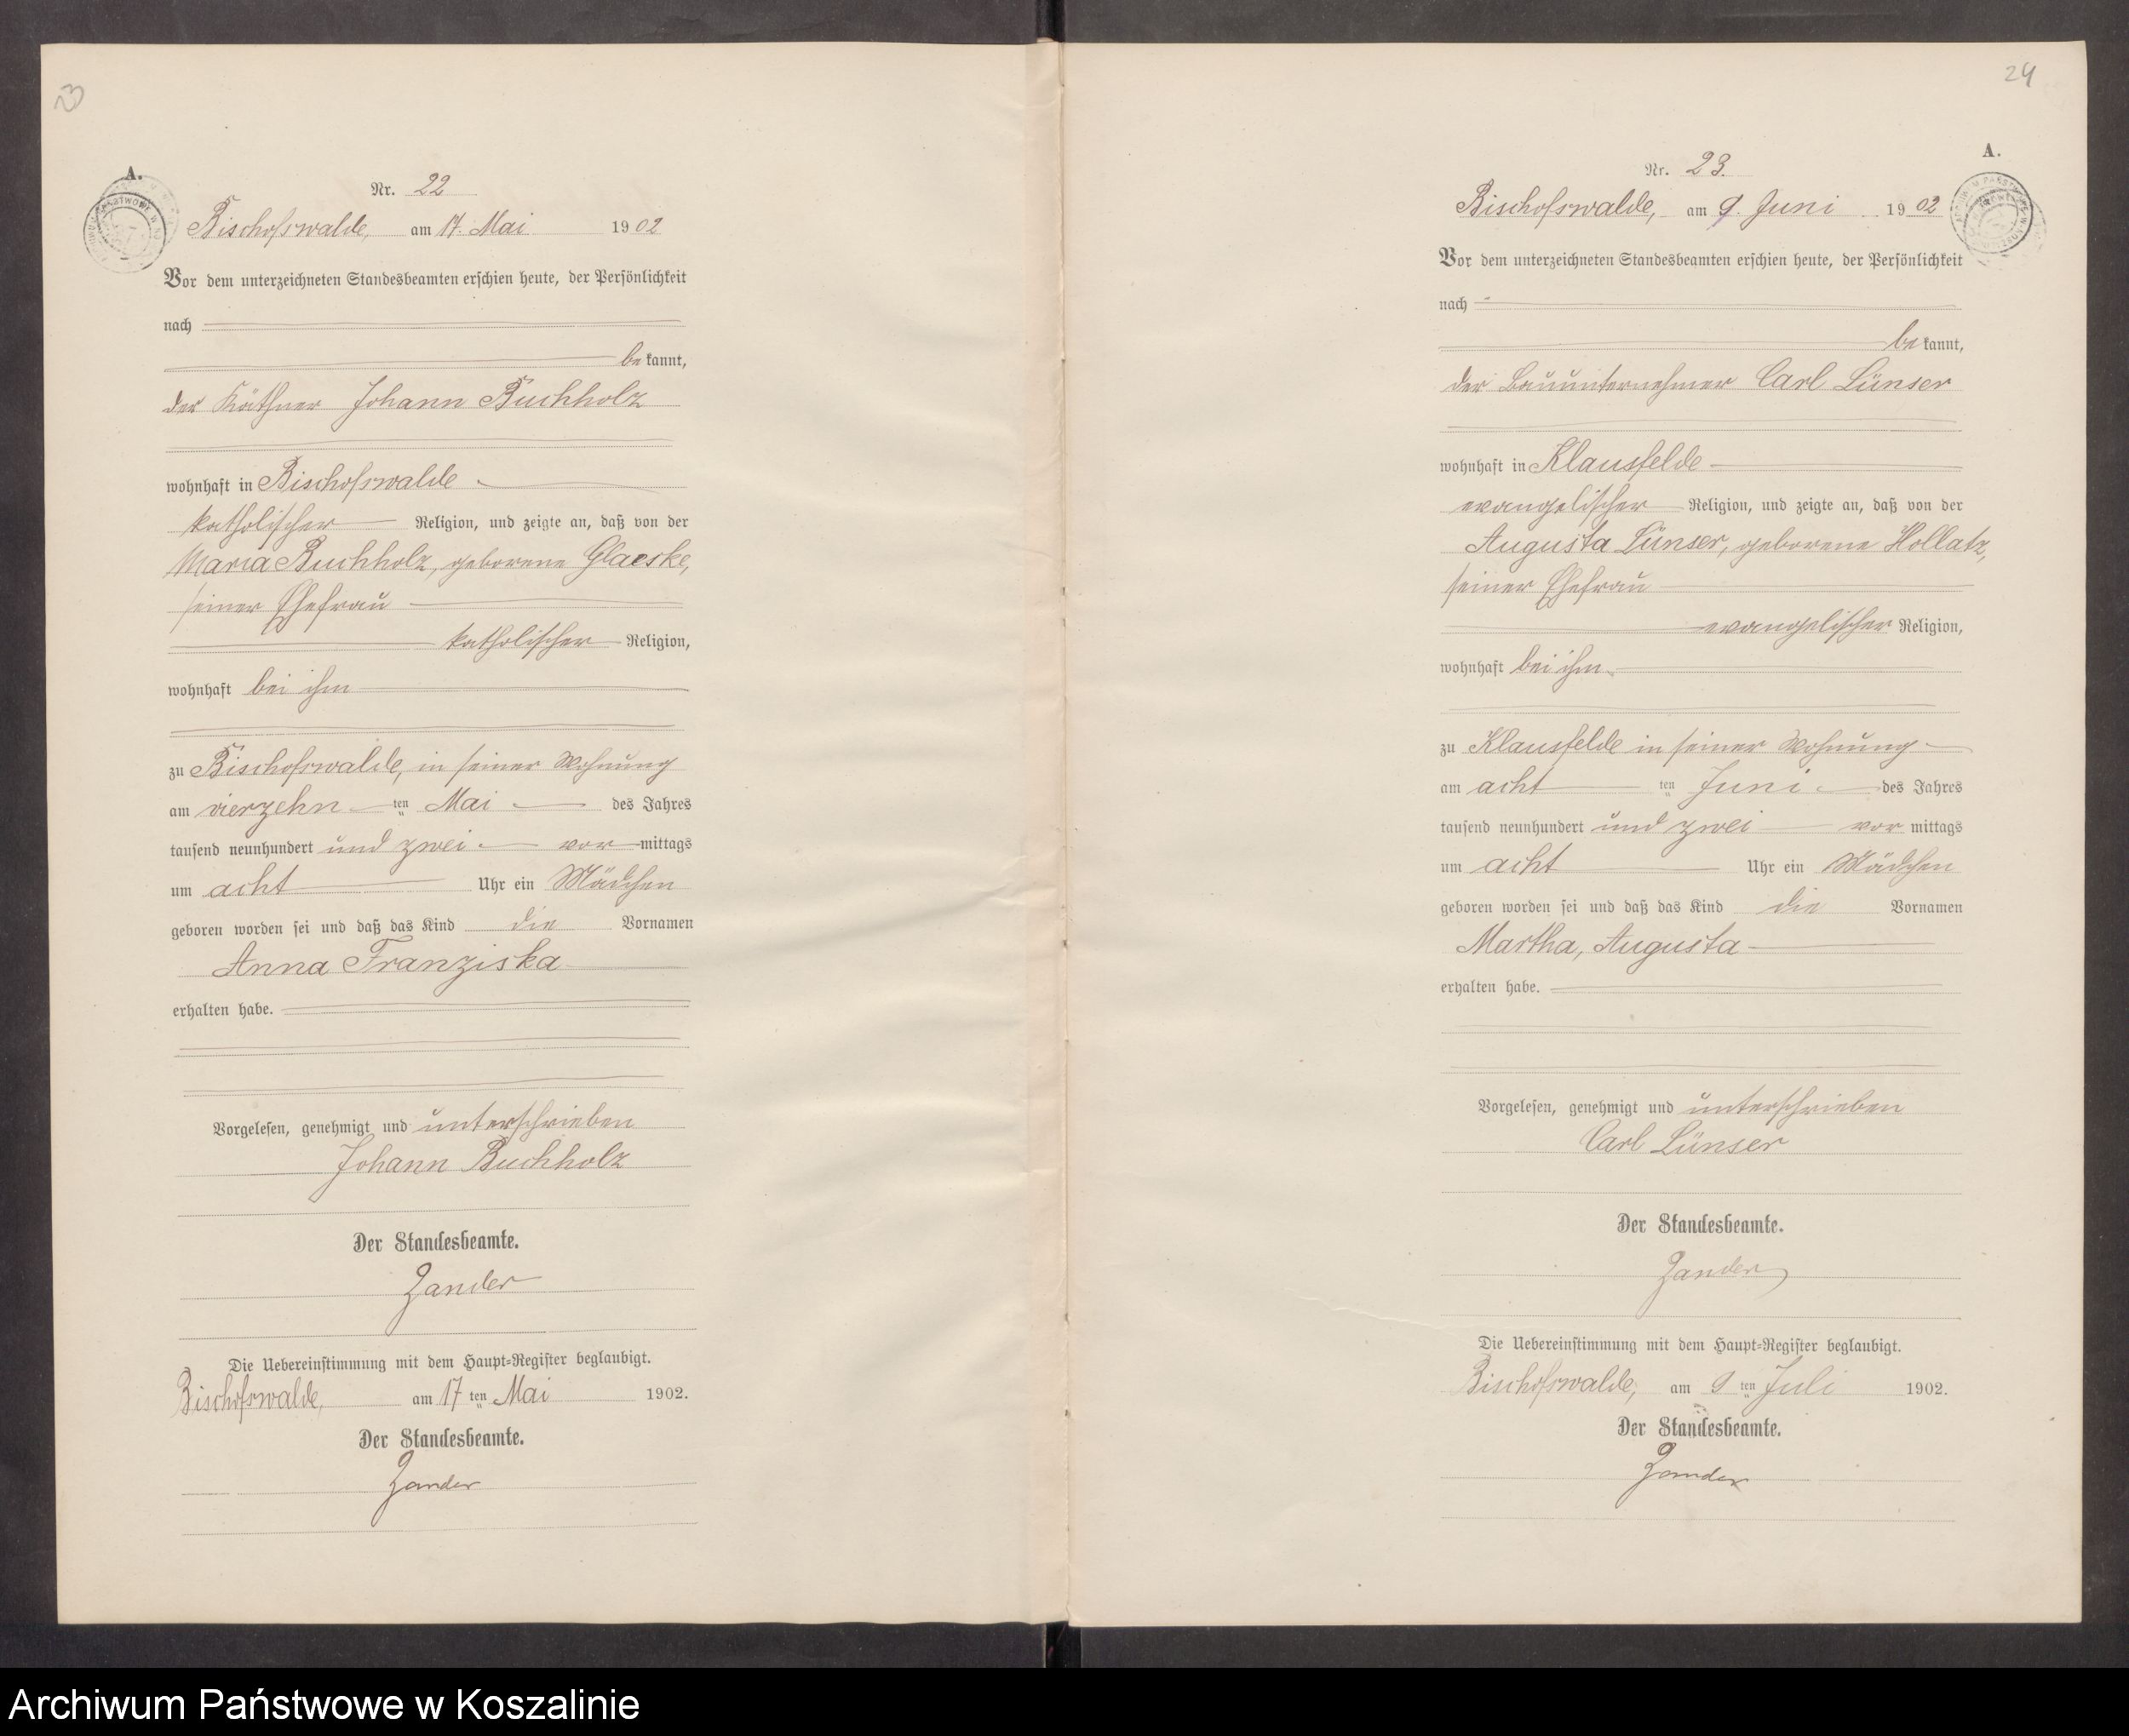 23
A.
Nr. 22
Bischofswalde, am 17. Mai 1902
Vor dem unterzeichneten Standesbeamten erschien heute, der Persönlichkeit
nach
bekannt,
der Käthner Johann Buchholz
wohnhaft in Bischofswalde
katholischer Religion, und zeigte an, daß von der
Maria Buchholz, geborene Glaeske,
seiner Ehefrau
katholischer Religion,
wohnhaft bei ihm
zu Bischofswalde, in seiner Wohnung
am vierzehn ten Mai des Jahres
tausend neunhundert und zwei vormittags
um acht Uhr ein Mädchen
geboren worden sei und daß das Kind die Vornamen
Anna Franziska
erhalten habe.
Vorgelesen, genehmigt und unterschrieben
Johann Buchholz
Der Standesbeamte.
Zander
Die Uebereinstimmung mit dem Haupt-Register beglaubigt.
Bischofswalde, am 17 ten Mai 1902.
Der Standesbeamte.
Zander
24
A.
Nr. 23.
Bischofswalde, am 9. Juni 1902
Vor dem unterzeichneten Standesbeamten erschien heute, der Persönlichkeit
nach
bekannt,
der Bauunternehmer Carl Lünser
wohnhaft in Klausfelde
evangelischer Religion, und zeigte an, daß von der
Augusta Lünser, geborene Hollatz,
seiner Ehefrau
evangelischer Religion,
wohnhaft bei ihm
zu Klausfelde in seiner Wohnung
am acht ten Juni des Jahres
tausend neunhundert und zwei vormittags
um acht Uhr ein Mädchen
geboren worden sei und daß das Kind die Vornamen
Martha, Augusta
erhalten habe.
Vorgelesen, genehmigt und unterschrieben
Carl Lünser
Der Standesbeamte.
Zander
Die Uebereinstimmung mit dem Haupt-Register beglaubigt.
Bischofswalde, am 9 ten Juli 1902.
Der Standesbeamte.
Zander
Archiwum Państwowe w Koszalinie